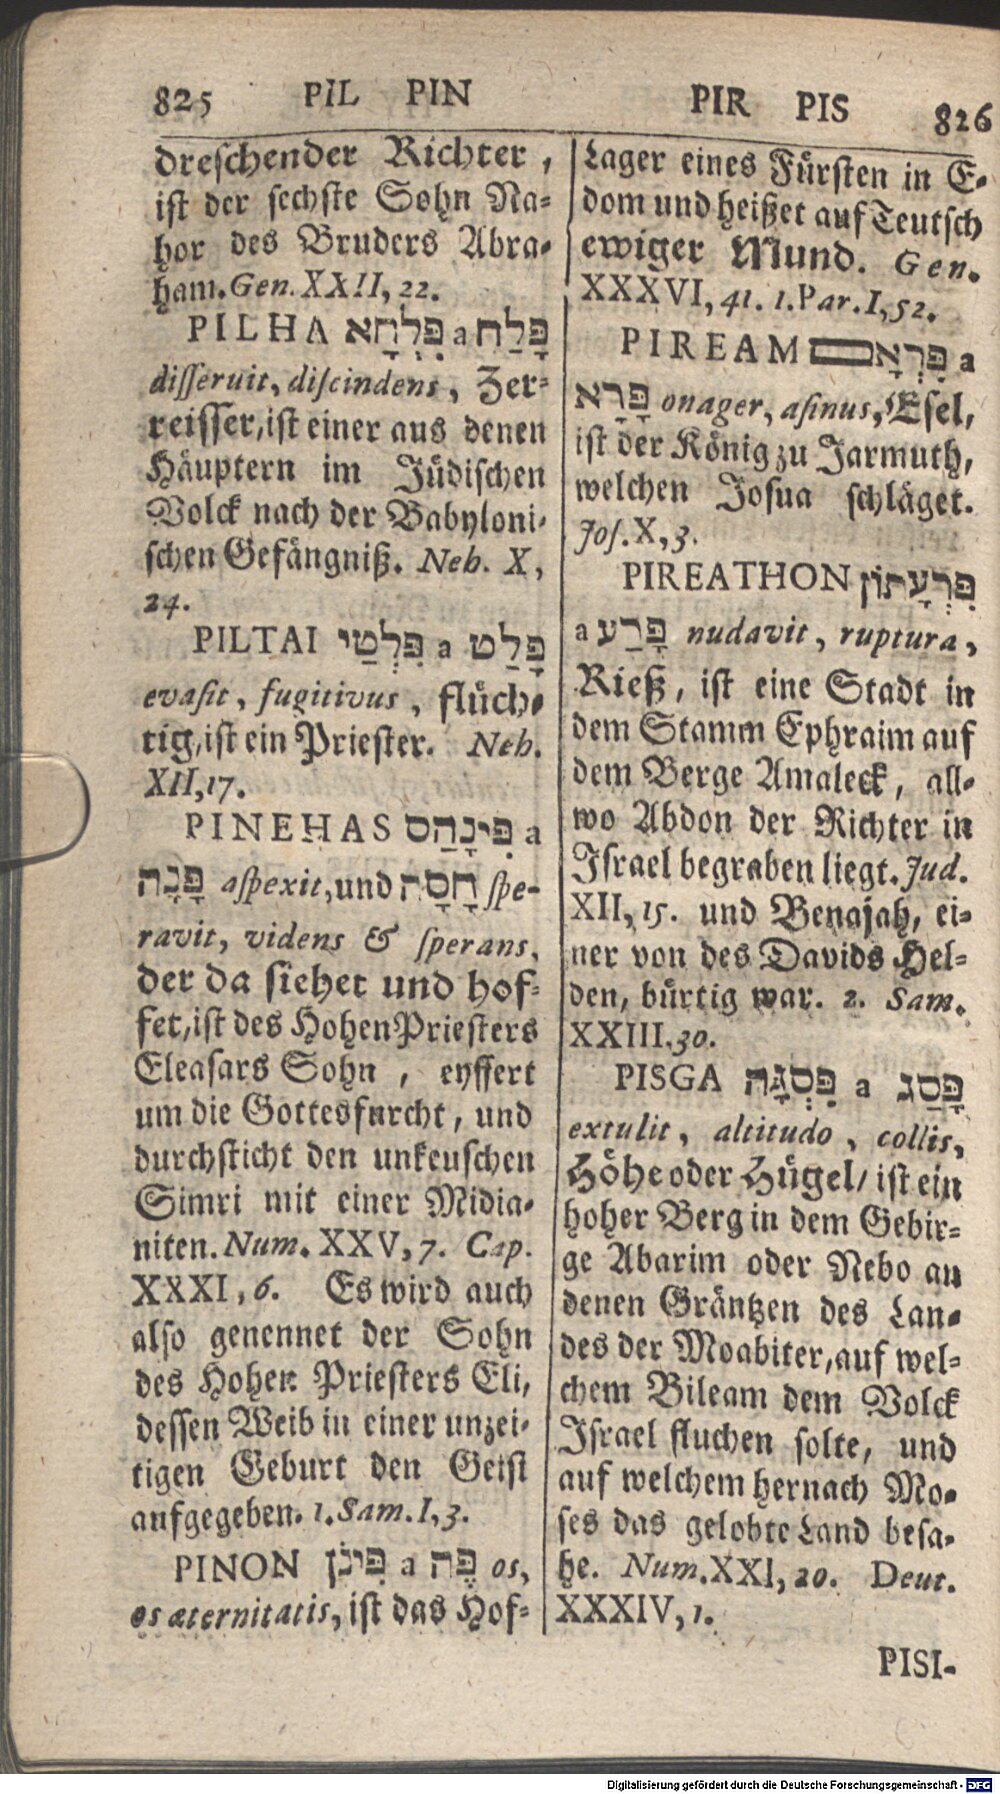 825 PIL PIN
dreschender Richter,
ist der sechste Sohn Na-
hor des Bruders Abra-
ham. Gen. XXII, 22.
PILHA פִּלְחָא a פָּלַח
disseruit, discindens, Zer-
reisser, ist einer aus denen
Häuptern im Jüdischen
Volck nach der Babyloni-
schen Gefängniß. Neh. X,
24.
PILTAI פִּלְטַי a פָּלַט
evasit, fugitivus, flüch-
tig, ist ein Priester. Neh.
XII, 17.
PINEHAS פִּינְחַס a
פָּנָה aspexit, und חָסָה spe-
ravit, videns & sperans,
der da siehet und hof-
fet, ist des Hohen Priesters
Eleasars Sohn, eyffert
um die Gottesfurcht, und
durchsticht den unkeuschen
Simri mit einer Midia-
niten. Num. XXV, 7. Cap.
XXXI, 6. Es wird auch
also genennet der Sohn
des Hohen Priesters Eli,
dessen Weib in einer unzei-
tigen Geburt den Geist
aufgegeben. 1. Sam. I, 3.
PINON פִּינֹן a פֶּה os,
os æternitatis, ist das Hof-
PIR PIS 826
Lager eines Fürsten in E-
dom und heißet auf Teutsch
ewiger Mund. Gen.
XXXVI, 41. 1. Par. I, 52.
PIREAM פִּרְאָם a
פָּרָא onager, asinus, Esel,
ist der König zu Jarmuth,
welchen Josua schläget.
Jos. X, 3.
PIREATHON פִּרְעָתוֹן
a פָּרַע nudavit, ruptura,
Rieß, ist eine Stadt in
dem Stamm Ephraim auf
dem Berge Amaleck, all-
wo Abdon der Richter in
Israel begraben liegt. Jud.
XII, 15. und Benajah, ei-
ner von des Davids Hel-
den, bürtig war. 2. Sam.
XXIII. 30.
PISGA פִּסְגָּה a פָּסַג
extulit, altitudo, collis,
Höhe oder Hügel/ ist ein
hoher Berg in dem Gebir-
ge Abarim oder Nebo an
denen Gräntzen des Lan-
des der Moabiter, auf wel-
chem Bileam dem Volck
Israel fluchen solte, und
auf welchem hernach Mo-
ses das gelobte Land besa-
he. Num. XXI, 20. Deut.
XXXIV, 1.
PISI-
Digitalisierung gefördert durch die Deutsche Forschungsgemeinschaft - DFG